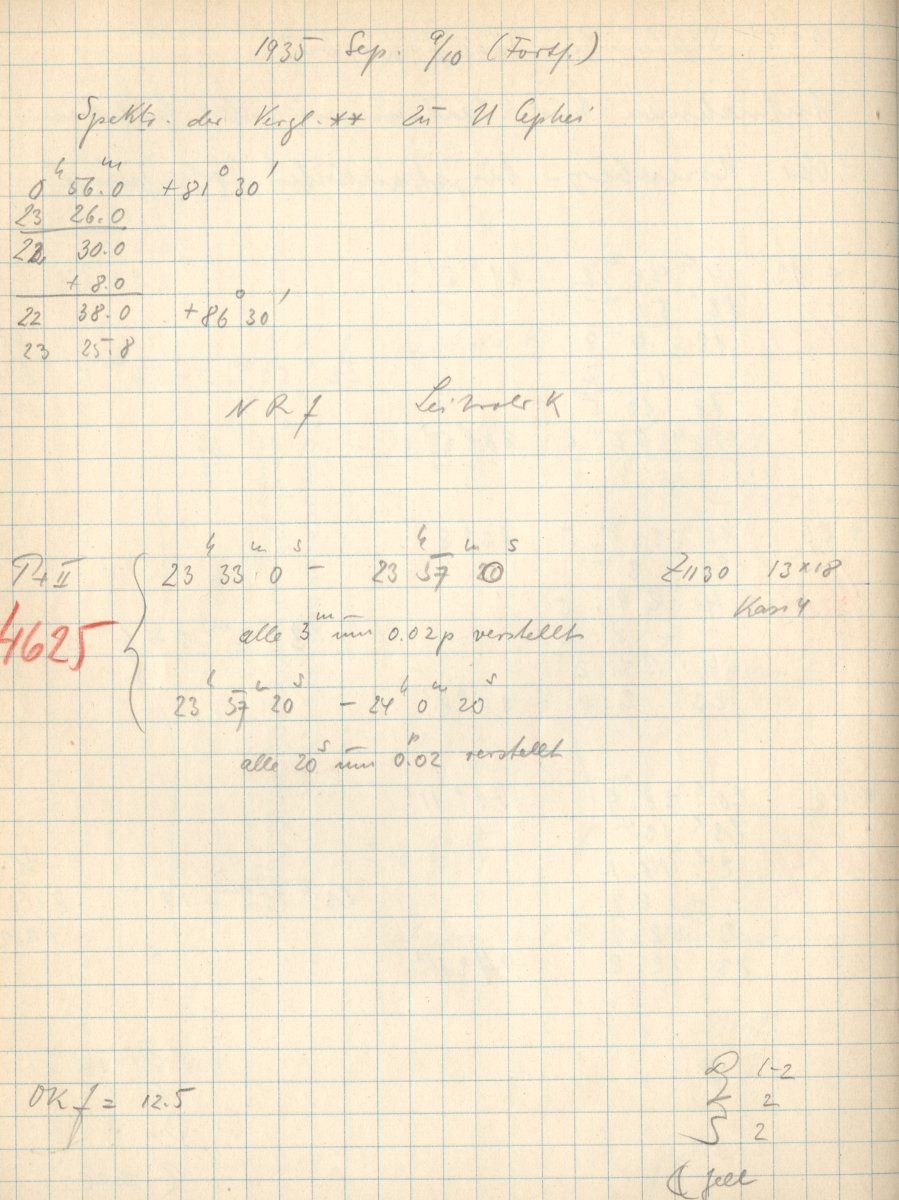 1935 Sep. 9/10 (Forts.)
Spektr. der Vergl. ** zu U Cephei
0ʰ 56.0ᵐ +81° 30′
23 26.0
22 30.0
+ 8.0
22 38.0 +86° 30′
23 25.8
N R f Leitrohr K
T + II 23ʰ 33ᵐ 0ˢ – 23ʰ 57ᵐ 20ˢ Z1130 13×18
4625 Kas 4
alle 3ᵐ um 0.02p verstellt
23ʰ 57ᵐ 20ˢ – 24ʰ 0ᵐ 20ˢ
alle 20ˢ um 0ᵖ.02 verstellt
OK f = 12.5
D 1-2
Z 2
S 2
☾ hell